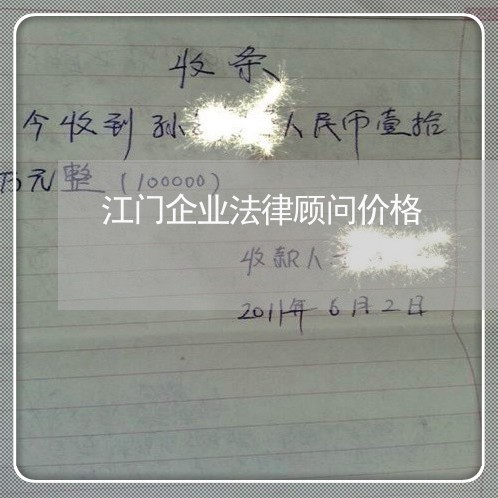 收条
今收到孙 人民币壹拾
万元整（100000）
江门企业法律顾问价格
收款人
2011年6月2日